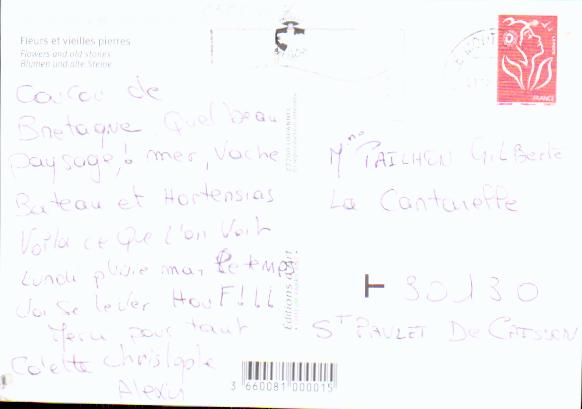 Fleurs et vieilles pierres
Flowers and old stones
Blumen und alte Steine
Coucou de
Bretagne. Quel beau
paysage! mer, Vache
Bateau et Hortensias
Voila ce Que l'on Voit
Lundi pluie mai le temps
Va se lever Houf!!!
Merci pour tout
Colette Christophe
Alexis
Editions d'art
3 660081 000015
FRANCE
Mme PAILHON GILBerte
La
30130
ST PAULET De CAISSON